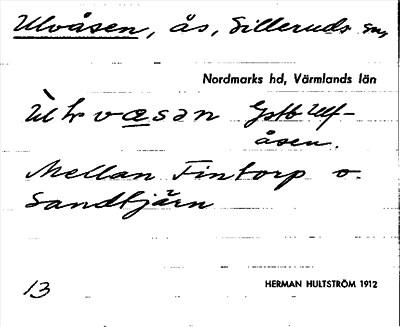 Ulvåsen, ås, Silleruds sn,
Nordmarks hd, Värmlands län
Gstb Ulf-
åsen.
Mellan Fintorp o.
Sandtjärn
13
HERMAN HULTSTRÖM 1912